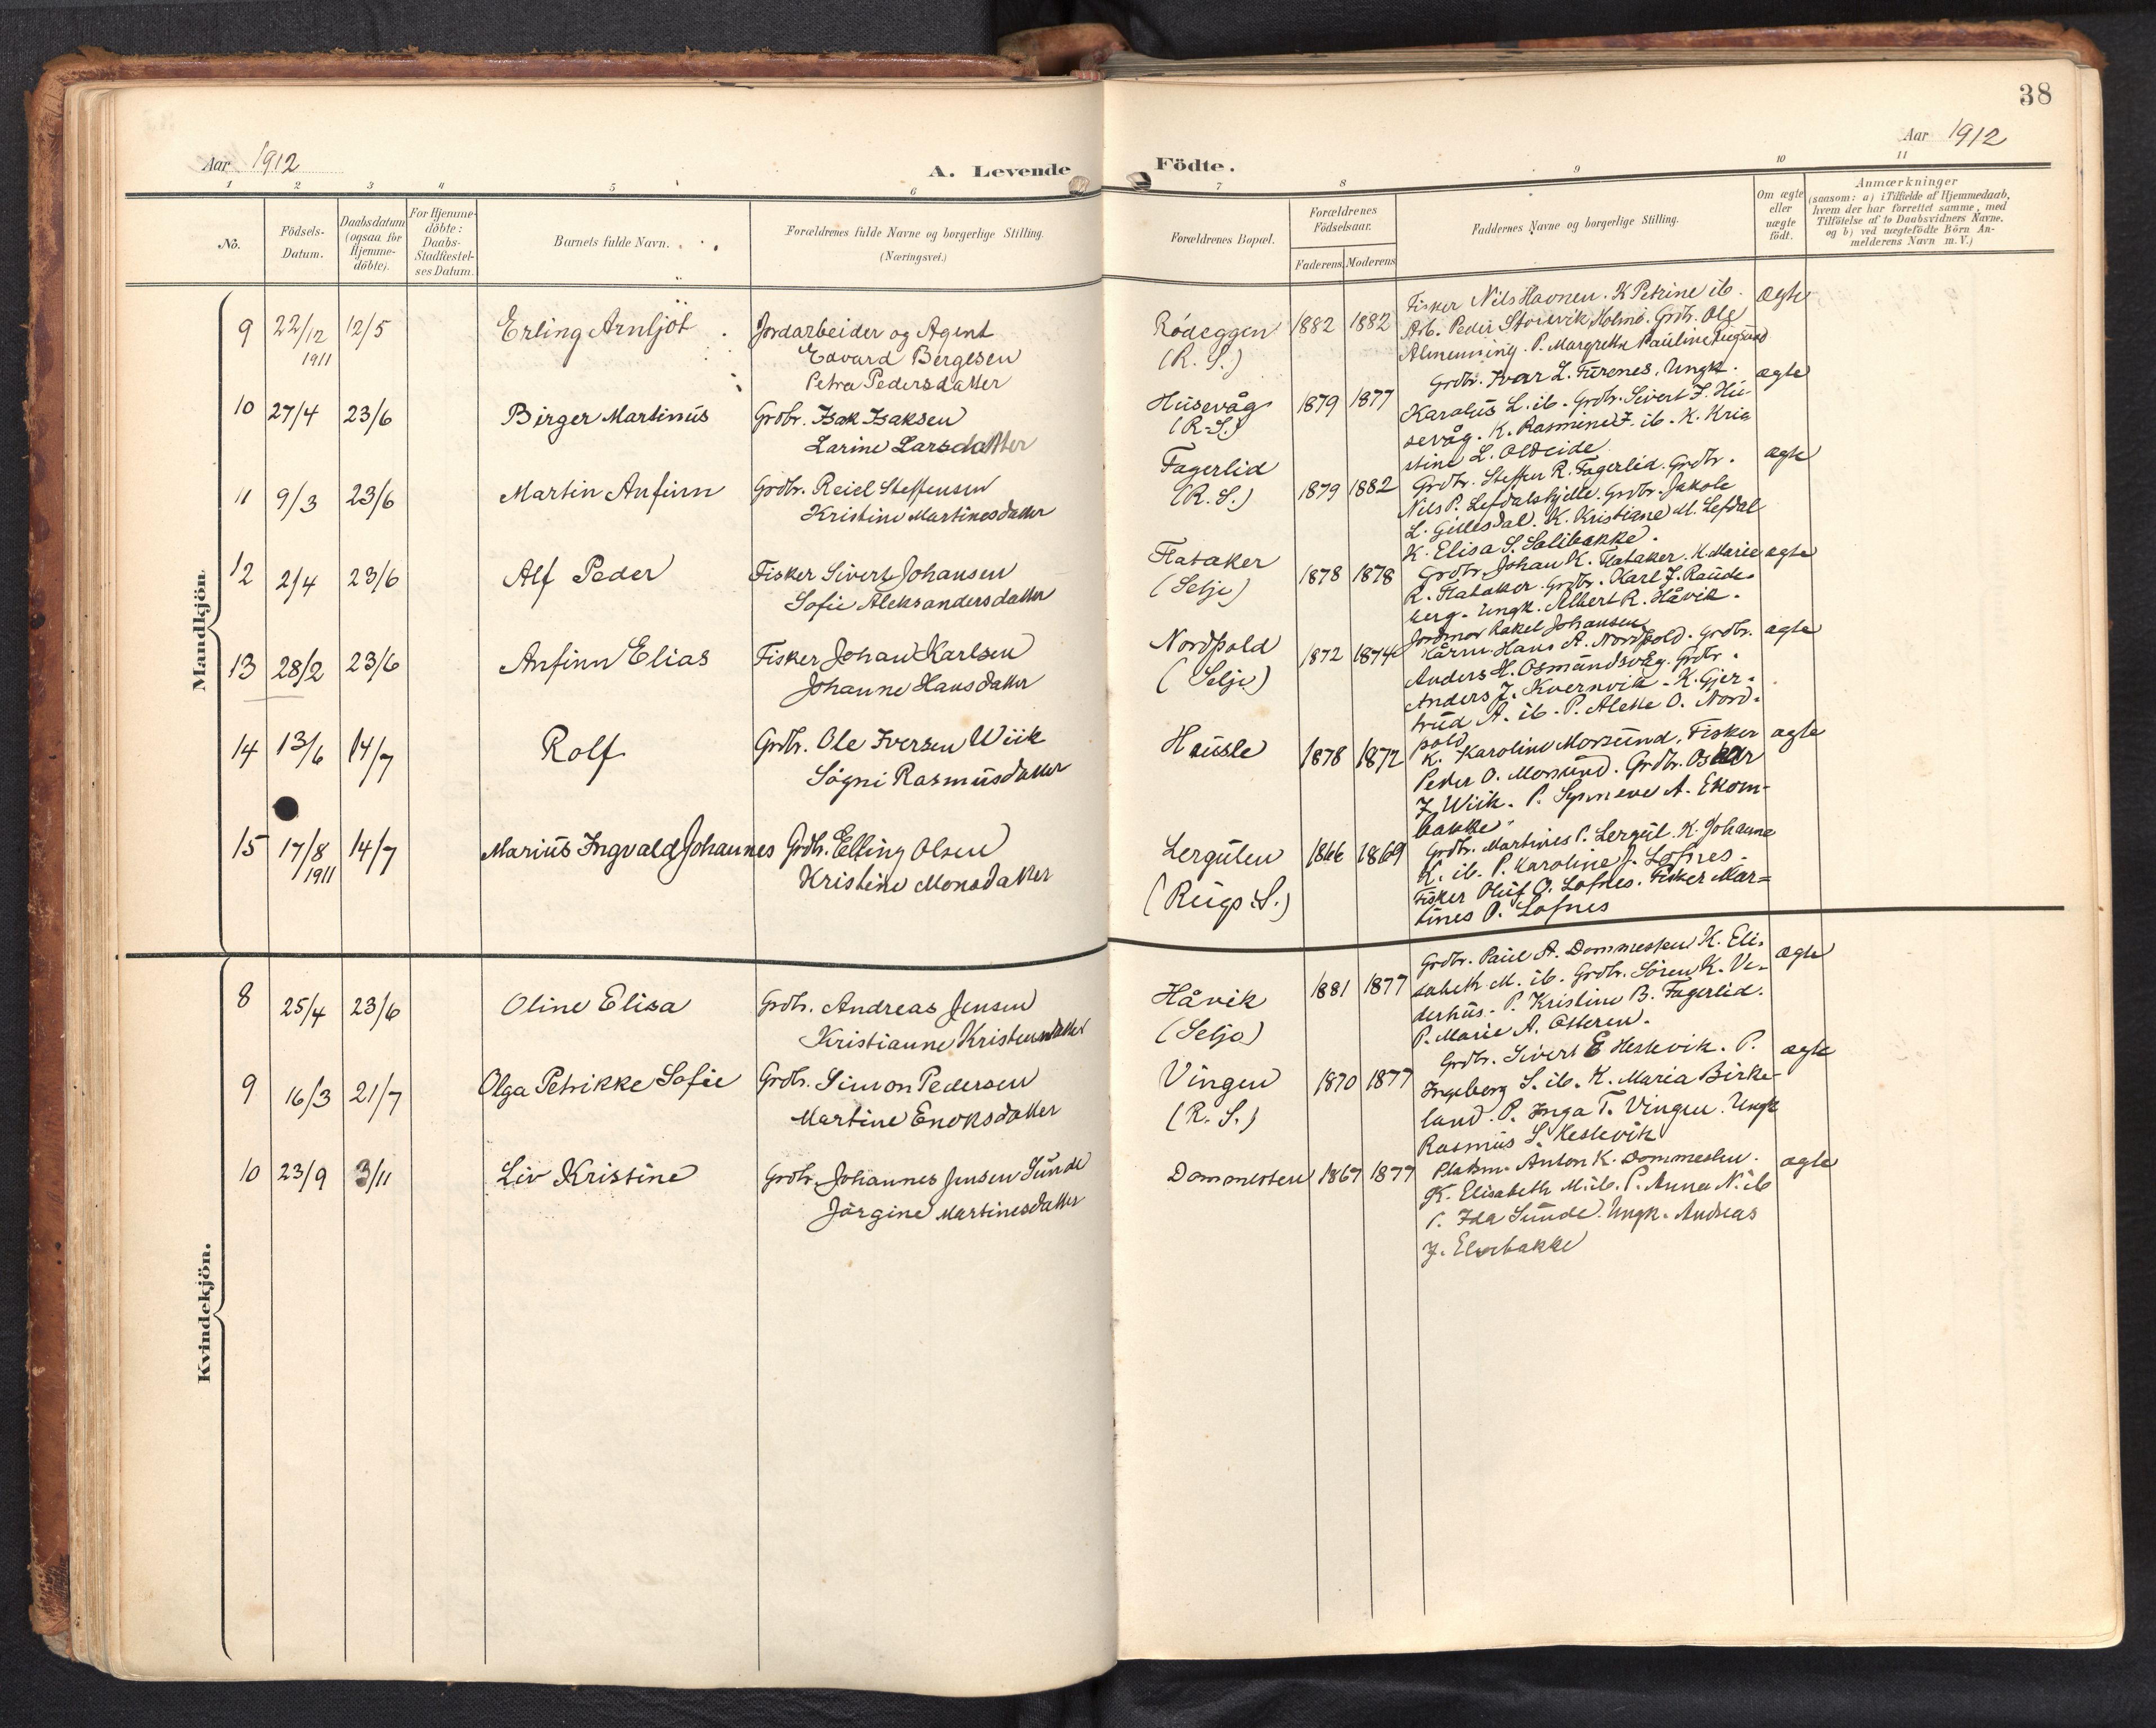 38
Aar 1912
A. Levende Födte.
Aar 1912
1 2 3 4 5 6 7 8 9 10 11
No.
Födsels-
Datum.
Daabsdatum
(ogsaa for
Hjemme-
döbte).
For Hjemme-
döbte:
Daabs-
Stadfæstel-
ses Datum.
Barnets fulde Navn.
Forældrenes fulde Navne og borgerlige Stilling.
(Næringsvei.)
Forældrenes Bopæl.
Forældrenes
Födselsaar.
Faderens Moderens
Faddernes Navne og borgerlige Stilling.
Om ægte
eller
uægte
födt.
Anmærkninger
(saasom: a) i Tilfælde af Hjemmedaab,
hvem der har forrettet samme, med
Tilföielse af to Daabsvidners Navne.
og b) ved uægtefödte Börn An-
melderens Navn m. V.)
Mandkjön.
9 22/12 1911 12/5 Erling Arnljöt
Jordarbeider og Agent
Edvard Bergesen
Petra Pedersdatter
Rödeggen
(R. S.)
1882 1882
Fisker Nils Havnen. K Petrine ib.
Arb. Peder Storevik, Holmö. Grdbr. Ole
Almenning. P. Margrethe Pauline
ægte
10 27/4 23/6 Birger Martinus
Grdbr. Isak Isaksen
Larine Larsdatter
Husevåg
(R. S.)
1879 1877
Grdbr. Ivar L. Furenes, Ungk.
Karolus L. ib. Grdbr. Sivert I. Hu-
sevåg. K. Rasmine I. ib. K. Kris
stine L. Oldeide
ægte
11 9/3 23/6 Martin Anfinn
Grdbr. Reiel Steffensen
Kristine Martinesdatter
Fagerlid
(R. S.)
1879 1882
Grdbr. Steffen R. Fagerlid. Grdbr.
Nils P. Lefdalskjelle. Grdbr. Jakob
L. Gillesdal. K. Kristiane M. Lefdal
K. Elisa S. Salibakke.
ægte
12 2/4 23/6 Alf Peder
Fisker Sivert Johansen
Sofie Aleksandersdatter
Flataker
(Selje)
1878 1878
Grdbr. Johan K. Flataker. K. Marie
R. Flataker. Grdbr. Karl J. Raude-
berg. Ungk. Albert R. Håvik.
Jordmor Rakel Johansen
ægte
13 28/2 23/6 Anfinn Elias
Fisker Johan Karlsen
Johanne Hansdatter
Nordpold
(Selje)
1872 1874
Kårm. Hans A. Nordpold. Grdbr.
Anders H. Osmundsvåg. Grdbr.
Anders J. Kvernvik. K. Gjer-
trud A. ib. P. Alette O. Nord-
pold
ægte
14 13/6 14/7 Rolf
Grdbr. Ole Iversen Wiik
Sögni Rasmusdatter
Hausle
1878 1872
K. Karoline Morsund. Fisker
Peder O. Morsund. Grdbr. Oskar
I. Wiik. P. Synneve A. Ekom-
bakke.
ægte
15 17/8 1911 14/7 Marius Ingvald Johannes
Grdbr. Elling Olsen
Kristine Monsdatter
Lergulen
(Rugs. S.)
1866 1869
Grdbr. Martines P. Lergul. K. Johanna
K. ib. P. Karoline J. Lofnes.
Fisker Oluf O. Lofnes. Fisker Mar-
tines O. Lofnes
Kvindekjön.
8 25/4 23/6 Oline Elisa
Grdbr. Andreas Jensen
Kristianne Kristensdatter
Håvik
(Selje)
1881 1877
Grdbr. Paul A. Dommesten K. Eli-
sabeth M. ib. Grdbr. Sören K. Ve-
derhus. P. Kristine B. Fagerlid.
P. Marie A. Osteren.
ægte
9 16/3 21/7 Olga Petrikke Sofie
Grdbr. Simon Pedersen
Martine Enoksdatter
Vingen
(R. S.)
1870 1877
Grdbr. Sivert E Heskevik. P.
Ingeborg S. ib. K. Maria Birke-
land. P. Inga T. Vingen. Ungk
Rasmus S. Heskevik
ægte
10 23/9 3/11 Liv Kristine
Grdbr. Johannes Jensen Sunde
Jörgine Martinesdatter
Dommesten
1867 1877
Pladsm. Anton K. Dommesten.
K. Elisabeth M. ib. P. Anna N. ib
P. Ida Sunde. Ungk. Andreas
J. Elvebakke
ægte